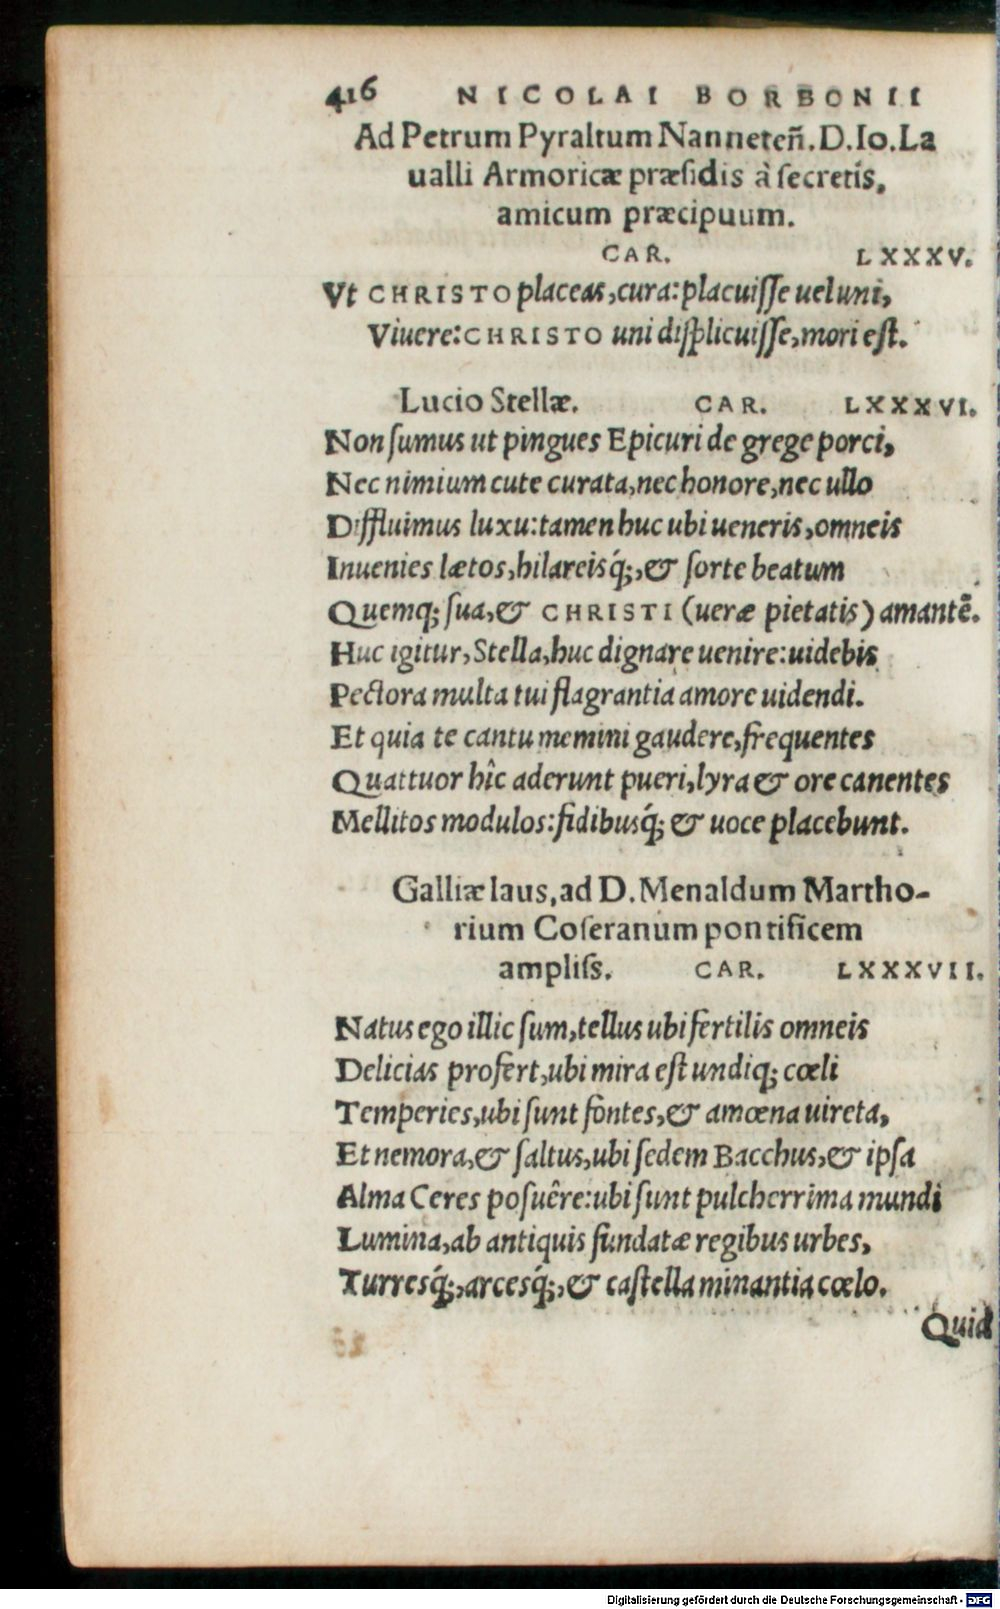 416 NICOLAI BORBONII
Ad Petrum Pyraltum Nanneteñ. D. Io. La
ualli Armoricæ præsidis à secretis,
amicum præcipuum.
CAR. LXXXV.
Vt CHRISTO placeas, cura: placuisse uel uni,
Viuere: CHRISTO uni displicuisse, mori est.
Lucio Stellæ. CAR. LXXXVI.
Non sumus ut pingues Epicuri de grege porci,
Nec nimium cute curata, nec honore, nec ullo
Diffluimus luxu: tamen huc ubi ueneris, omneis
Inuenies lætos, hilareisq́;, & sorte beatum
Quemq; sua, & CHRISTI (ueræ pietatis) amantē.
Huc igitur, Stella, huc dignare uenire: uidebis
Pectora multa tui flagrantia amore uidendi.
Et quia te cantu memini gaudere, frequentes
Quattuor hîc aderunt pueri, lyra & ore canentes
Mellitos modulos: fidibusq́; & uoce placebunt.
Galliæ laus, ad D. Menaldum Martho-
rium Coseranum pontificem
ampliss. CAR. LXXXVII.
Natus ego illic sum, tellus ubi fertilis omneis
Delicias profert, ubi mira est undiq; cœli
Temperies, ubi sunt fontes, & amœna uireta,
Et nemora, & saltus, ubi sedem Bacchus, & ipsa
Alma Ceres posuêre: ubi sunt pulcherrima mundi
Lumina, ab antiquis fundatæ regibus urbes,
Turresq́;, arcesq́;, & castella minantia cœlo.
Quid
Digitalisierung gefördert durch die Deutsche Forschungsgemeinschaft - DFG